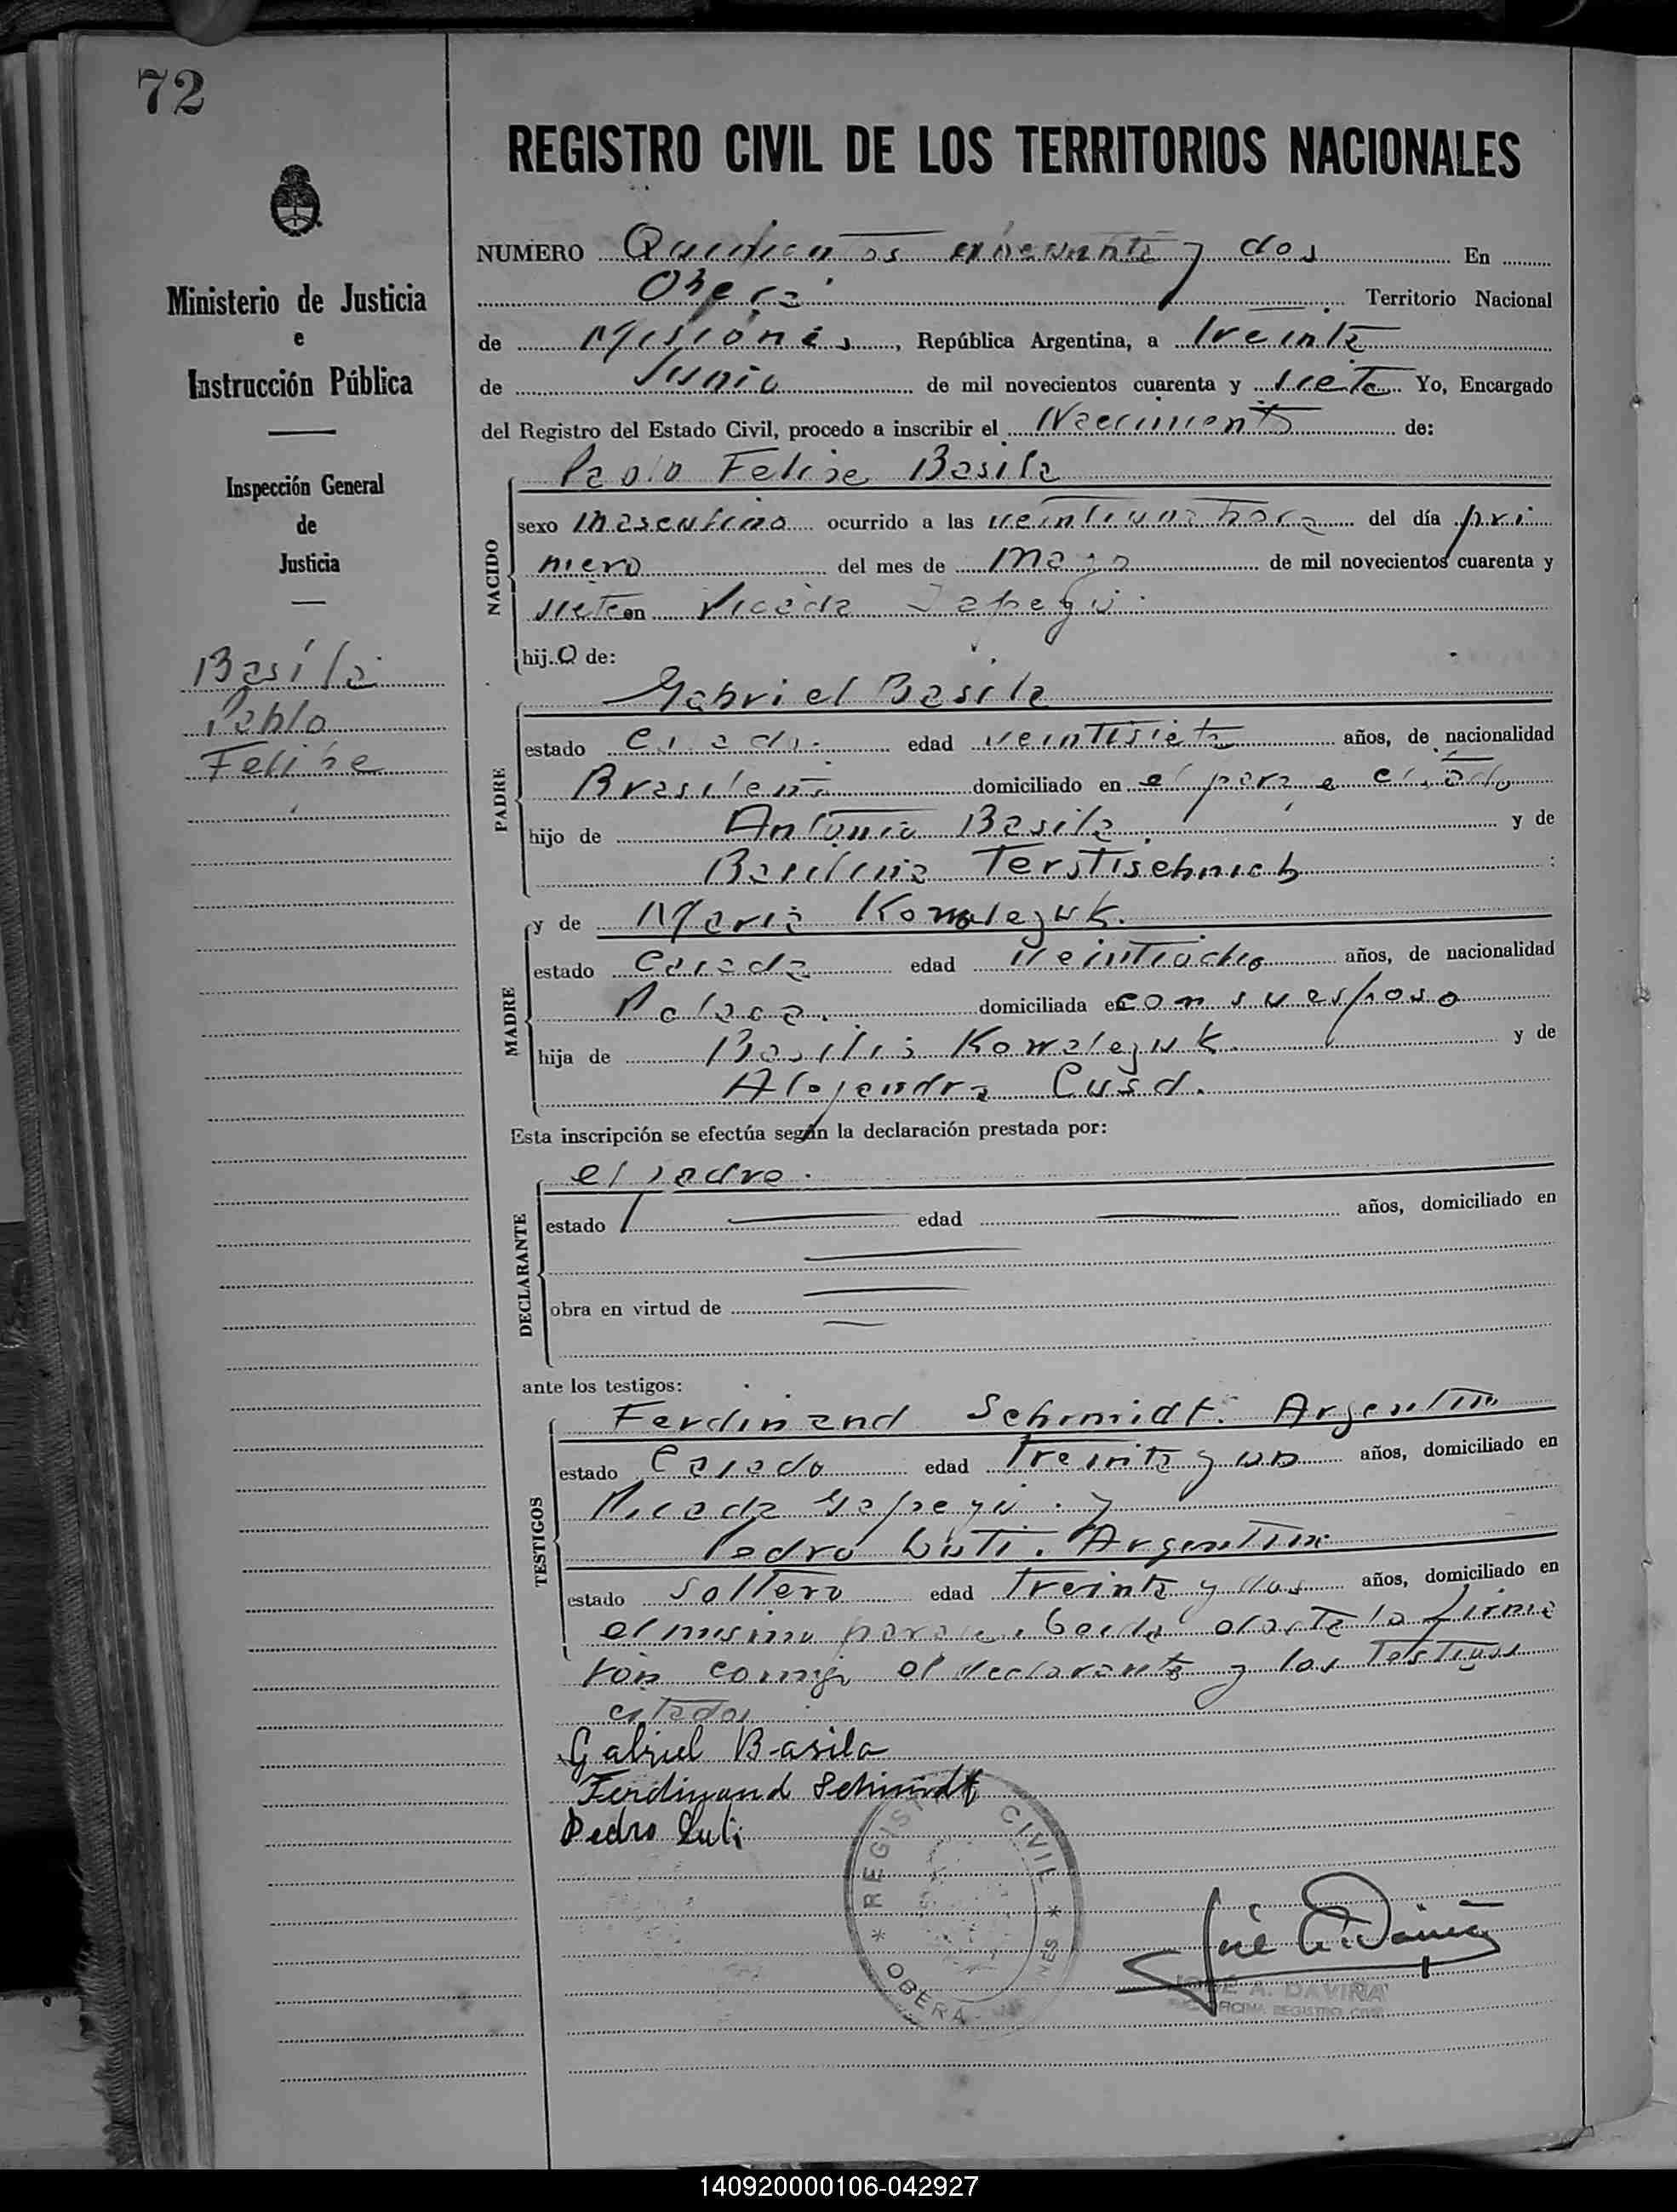 72
REGISTRO CIVIL DE LOS TERRITORIOS NACIONALES
Ministerio de Justicia
e
Instrucción Pública
Inspección General
de
Justicia
Basila
Pablo
Felipe
NUMERO Quinientos y dos En
Oberá Territorio Nacional
de Misiones, República Argentina, a treinta
de Junio de mil novecientos cuarenta y siete Yo, Encargado
del Registro del Estado Civil, procedo a inscribir el Nacimiento de:
NACIDO
Pablo Felipe Basila
sexo masculino ocurrido a las veintiuna hora del día pri
mero del mes de mayo de mil novecientos cuarenta y
siete en Picada Yapeyú
hijo de:
PADRE
Gabriel Basila
estado casado edad veintisiete años, de nacionalidad
Brasileña domiciliado en el paraje citado
hijo de Antonio Basila y de
Basilina Terstischnich
MADRE
y de Maria Kowalezuk.
estado casada edad veintiocho años, de nacionalidad
Polaca. domiciliada en con su esposo
hija de Basilio Kowalezuk y de
Alejandra Cusd.
Esta inscripción se efectúa según la declaración prestada por:
DECLARANTE
el padre.
estado edad años, domiciliado en
obra en virtud de
ante los testigos:
TESTIGOS
Ferdinand Schmidt. Argentino
estado Casado edad treinta y un años, domiciliado en
Picada Yapeyú. y
Pedro Luti. Argentino
estado soltero edad treinta y dos años, domiciliado en
el mismo paraje. Leida el acta la firma
ron conmigo el declarante y los testigos
citados
Gabriel Basila
Ferdinand Schmidt
Pedro Luti
REGISTRO CIVIL
OBERA
JOSE A. DAVIÑA
OFICINA REGISTRO CIVIL
140920000106-042927